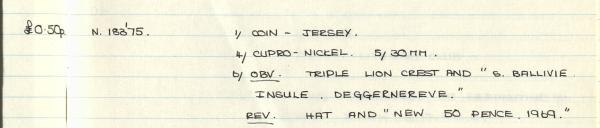 £0.50p N. 188'75. 1/ COIN - JERSEY.
4/ CUPRO-NICKEL. 5/ 30MM.
6/ OBV. TRIPLE LION CREST AND "S. BALLIVIE
INSULE. DEGGERNEREVE."
REV. HAT AND "NEW 50 PENCE. 1969."